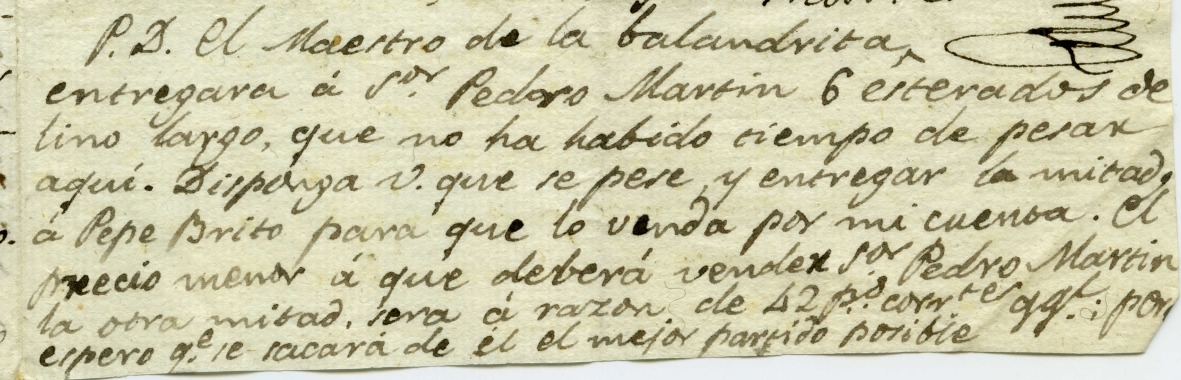 P.D. El Maestro de la balandrita,
entregara á Sor. Pedro Martin 6 esterados de
lino largo, que no ha habido tiempo de pesar
aqui. Disponga V. que se pese, y entregar la mitad,
á Pepe Brito para que lo venda por mi cuenta. El
precio menor á que deberá vender Sor. Pedro Martin
la otra mitad, sera á razon de 42 ps. corrtes qql.; por
espero qe. se sacará de él el mejor partido posible